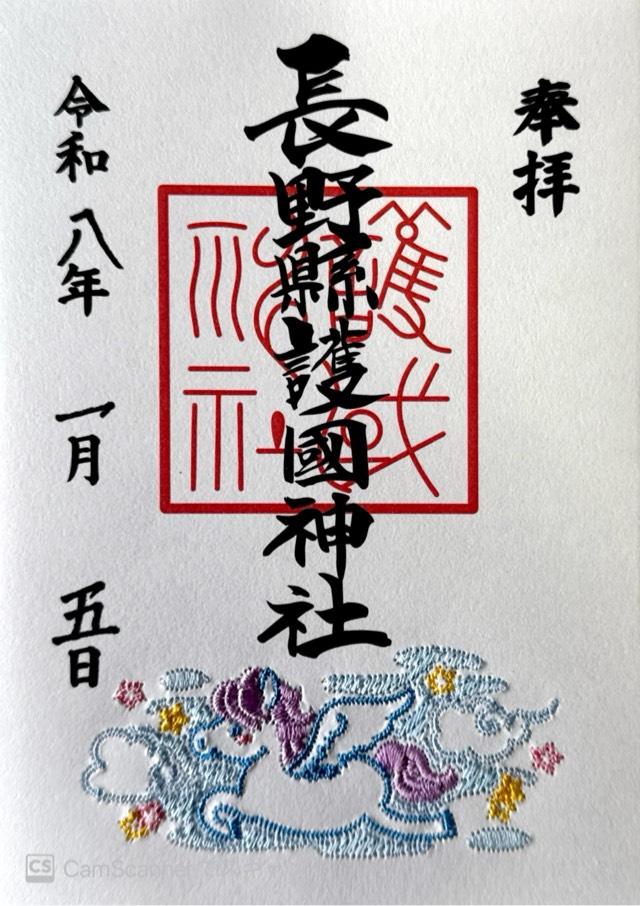 奉拝
長野縣護國神社
令和八年 一月 五日
CS CamScanner